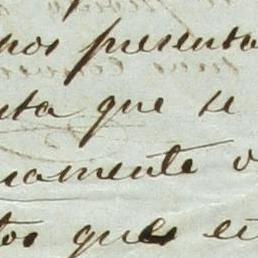 nos presenta
nta que se
namente o
tos que est